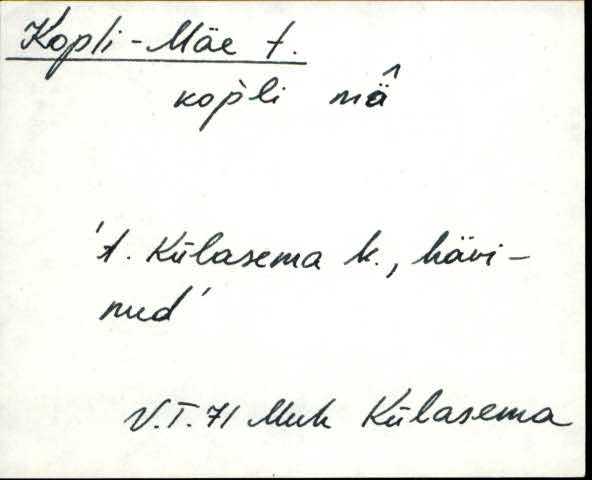 Kopli-Mäe t.
kop̀li mä̂
't. Külasema k., hävi-
nud'
V.T. 71 Muh Külasema